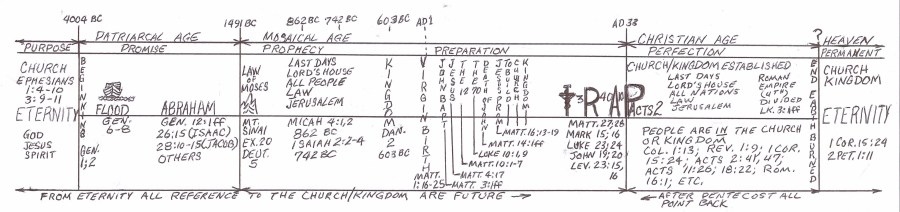 4004 BC
1491 BC
862 BC
742 BC
603 BC
AD 1
AD 33
?
PATRIARCAL AGE
MOSAICAL AGE
CHRISTIAN AGE
HEAVEN
PURPOSE
PROMISE
PROPHECY
PREPARATION
PERFECTION
PERMANENT
CHURCH
EPHESIANS
1:4-10
3:9-11
ETERNITY
GOD
JESUS
SPIRIT
BEGINNING
GEN.
1,2
FLOOD
GEN.
6-8
ABRAHAM
GEN. 12:1ff
26:15 (ISAAC)
28:10-15 (JACOB)
OTHERS
LAW
OF
MOSES
MT.
SINAI
EX. 20
DEUT.
LAST DAYS
LORD'S HOUSE
ALL PEOPLE
LAW
JERUSALEM
MICAH 4:1,2
862 BC
ISAIAH 2:2-4
742 BC
KINGDOM
DAN.
2
603 BC
VIRGIN BIRTH
MATT.
1:16-25
MATT. 3:1ff
MATT. 4:17
MATT. 10:1-7
LUKE 10:1,9
MATT. 14:1ff
MATT. 16:13-19
12
70
RIP
MATT. 27,28
MARK 15,16
LUKE 23,24
JOHN 19,20
LEV. 23:15,
16
ACTS 2
CHURCH/KINGDOM ESTABLISHED
LAST DAYS
LORD'S HOUSE
ALL NATIONS
LAW
JERUSALEM
ROMAN
EMPIRE
(4TH)
DIVIDED
LK. 3:1ff
PEOPLE ARE IN THE CHURCH
OR KINGDOM
COL. 1:13; REV. 1:9; 1 COR.
15:24; ACTS 2:41, 47;
ACTS 11:26; 18:22; ROM.
16:1; ETC.
END EARTH BURNED
CHURCH
KINGDOM
ETERNITY
1 COR. 15:24
2 PET. 1:11
FROM ETERNITY ALL REFERENCE TO THE CHURCH/KINGDOM ARE FUTURE
AFTER PENTECOST ALL
POINT BACK